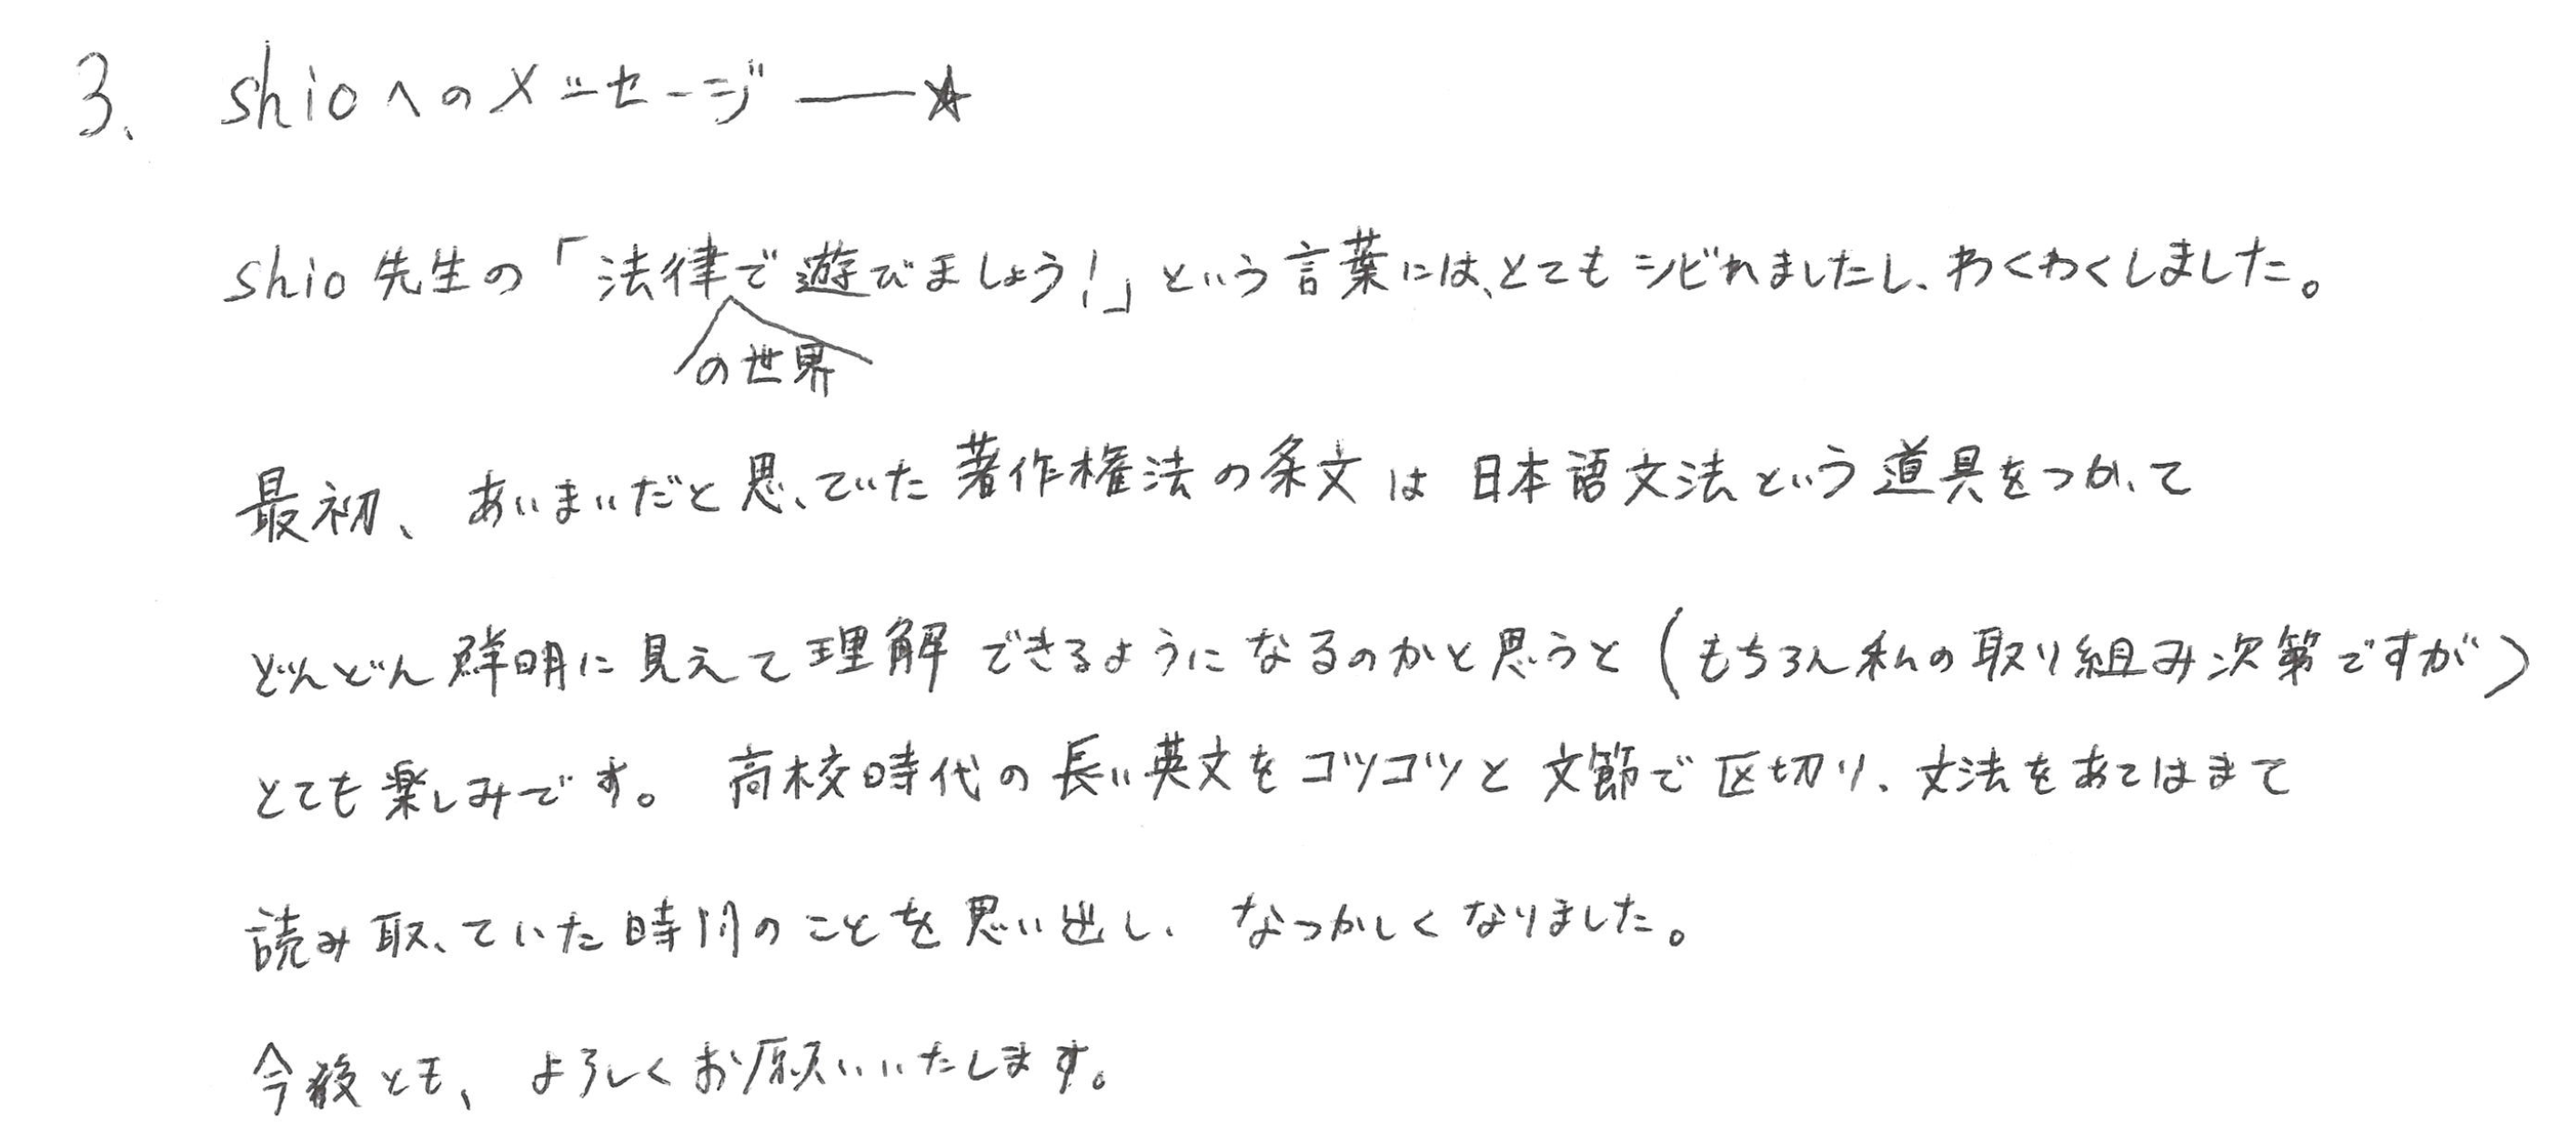 3、 shioへのメッセージ ――☆
shio先生の「法律で遊びましょう!」という言葉には、とてもシビれましたし、わくわくしました。
の世界
最初、あいまいだと思っていた著作権法の条文は日本語文法という道具をつかって
どんどん鮮明に見えて理解できるようになるのかと思うと(もちろん私の取り組み次第ですが)
とても楽しみです。高校時代の長い英文をコツコツと文節で区切り、文法をあてはまて
読み取っていた時間のことを思い出し、なつかしくなりました。
今後とも、よろしくお願いいたします。